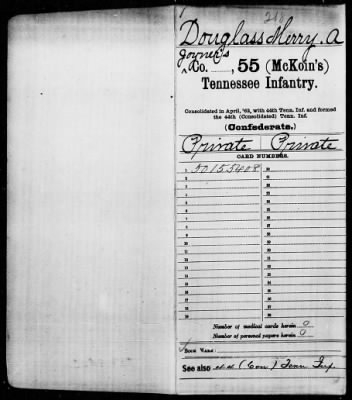 Douglass Merry. A
Joyner's
Co. ......, 55 (McKoin's)
Tennessee Infantry.
Consolidated in April, '62, with 44th Tenn. Inf. and formed
the 44th (Consolidated) Tenn. Inf.
(Confederate.)
Private Private
CARD NUMBERS.
1 50155408 20
2 21
3 22
4 23
5 24
6 25
7 26
8 27
9 28
10 29
11 30
12 31
13 32
14 33
15 34
16 35
17 36
18 37
19 38
Number of medical cards herein 0
Number of personal papers herein 0
BOOK MARK:
See also 44 (Con.) Tenn Inf.